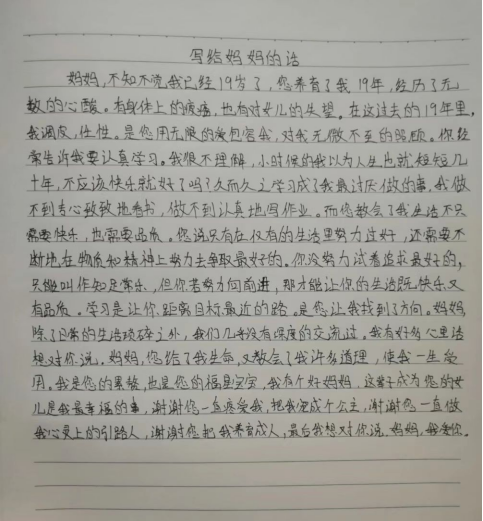 写给妈妈的话
妈妈,不知不觉我已经19岁了,您养育了我19年,经历了无
数的心酸。有身体上的疲痛,也有对女儿的失望。在这过去的19年里,
我调皮,任性。是您用无限的爱包容我,对我无微不至的照顾。你经
常告诉我要认真学习。我很不理解,小时候的我以为人生也就短短几
十年,不应该快乐就好了吗?久而久之学习成了我最讨厌做的事,我做
不到专心致致地看书,做不到认真地写作业。而您教会了我生活不只
需要快乐,也需要品质。您说只有在仅有的生活里努力过好,还需要不
断地在物质和精神上努力去争取最好的。你没努力试着追求最好的,
只能叫作知足常乐,但你若努力向前进,那才能让你的生活既快乐又
有品质。学习是让你距离目标最近的路。是您让我找到了方向。妈妈,
除了日常的生活琐碎之外,我们几乎没有深度的交流过。我有好多心里话
想对你说。妈妈,您给了我生命,又教会了我许多道理,使我一生受
用。我是您的累赘,也是您的福星宝宝,我有个好妈妈,这辈子成为您的女
儿是我最幸福的事,谢谢您一直疼爱我,把我宠成个公主,谢谢您一直做
我心灵上的引路人,谢谢您把我养育成人,最后我想对你说,妈妈,我爱你。